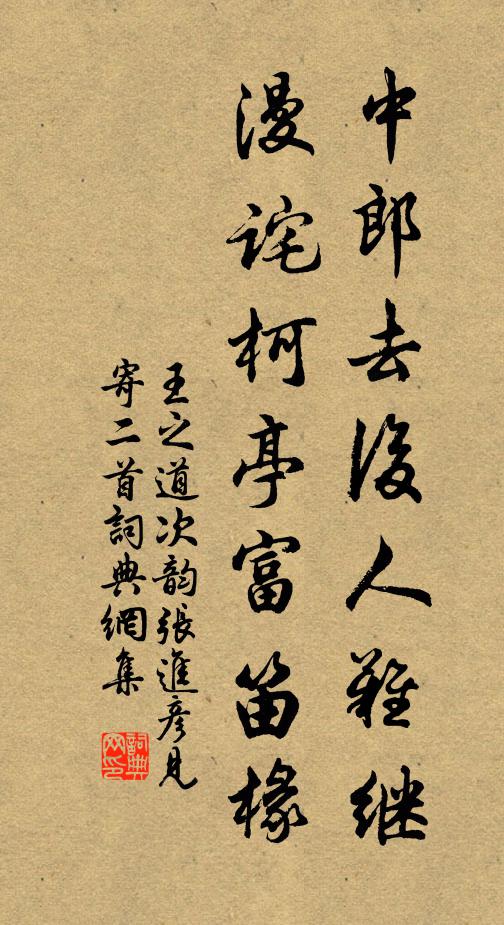 中郎去後人難继
漫詫柯亭富笛椽
王之道次韵張進彦見
寄二首詞典網集
詞典网印